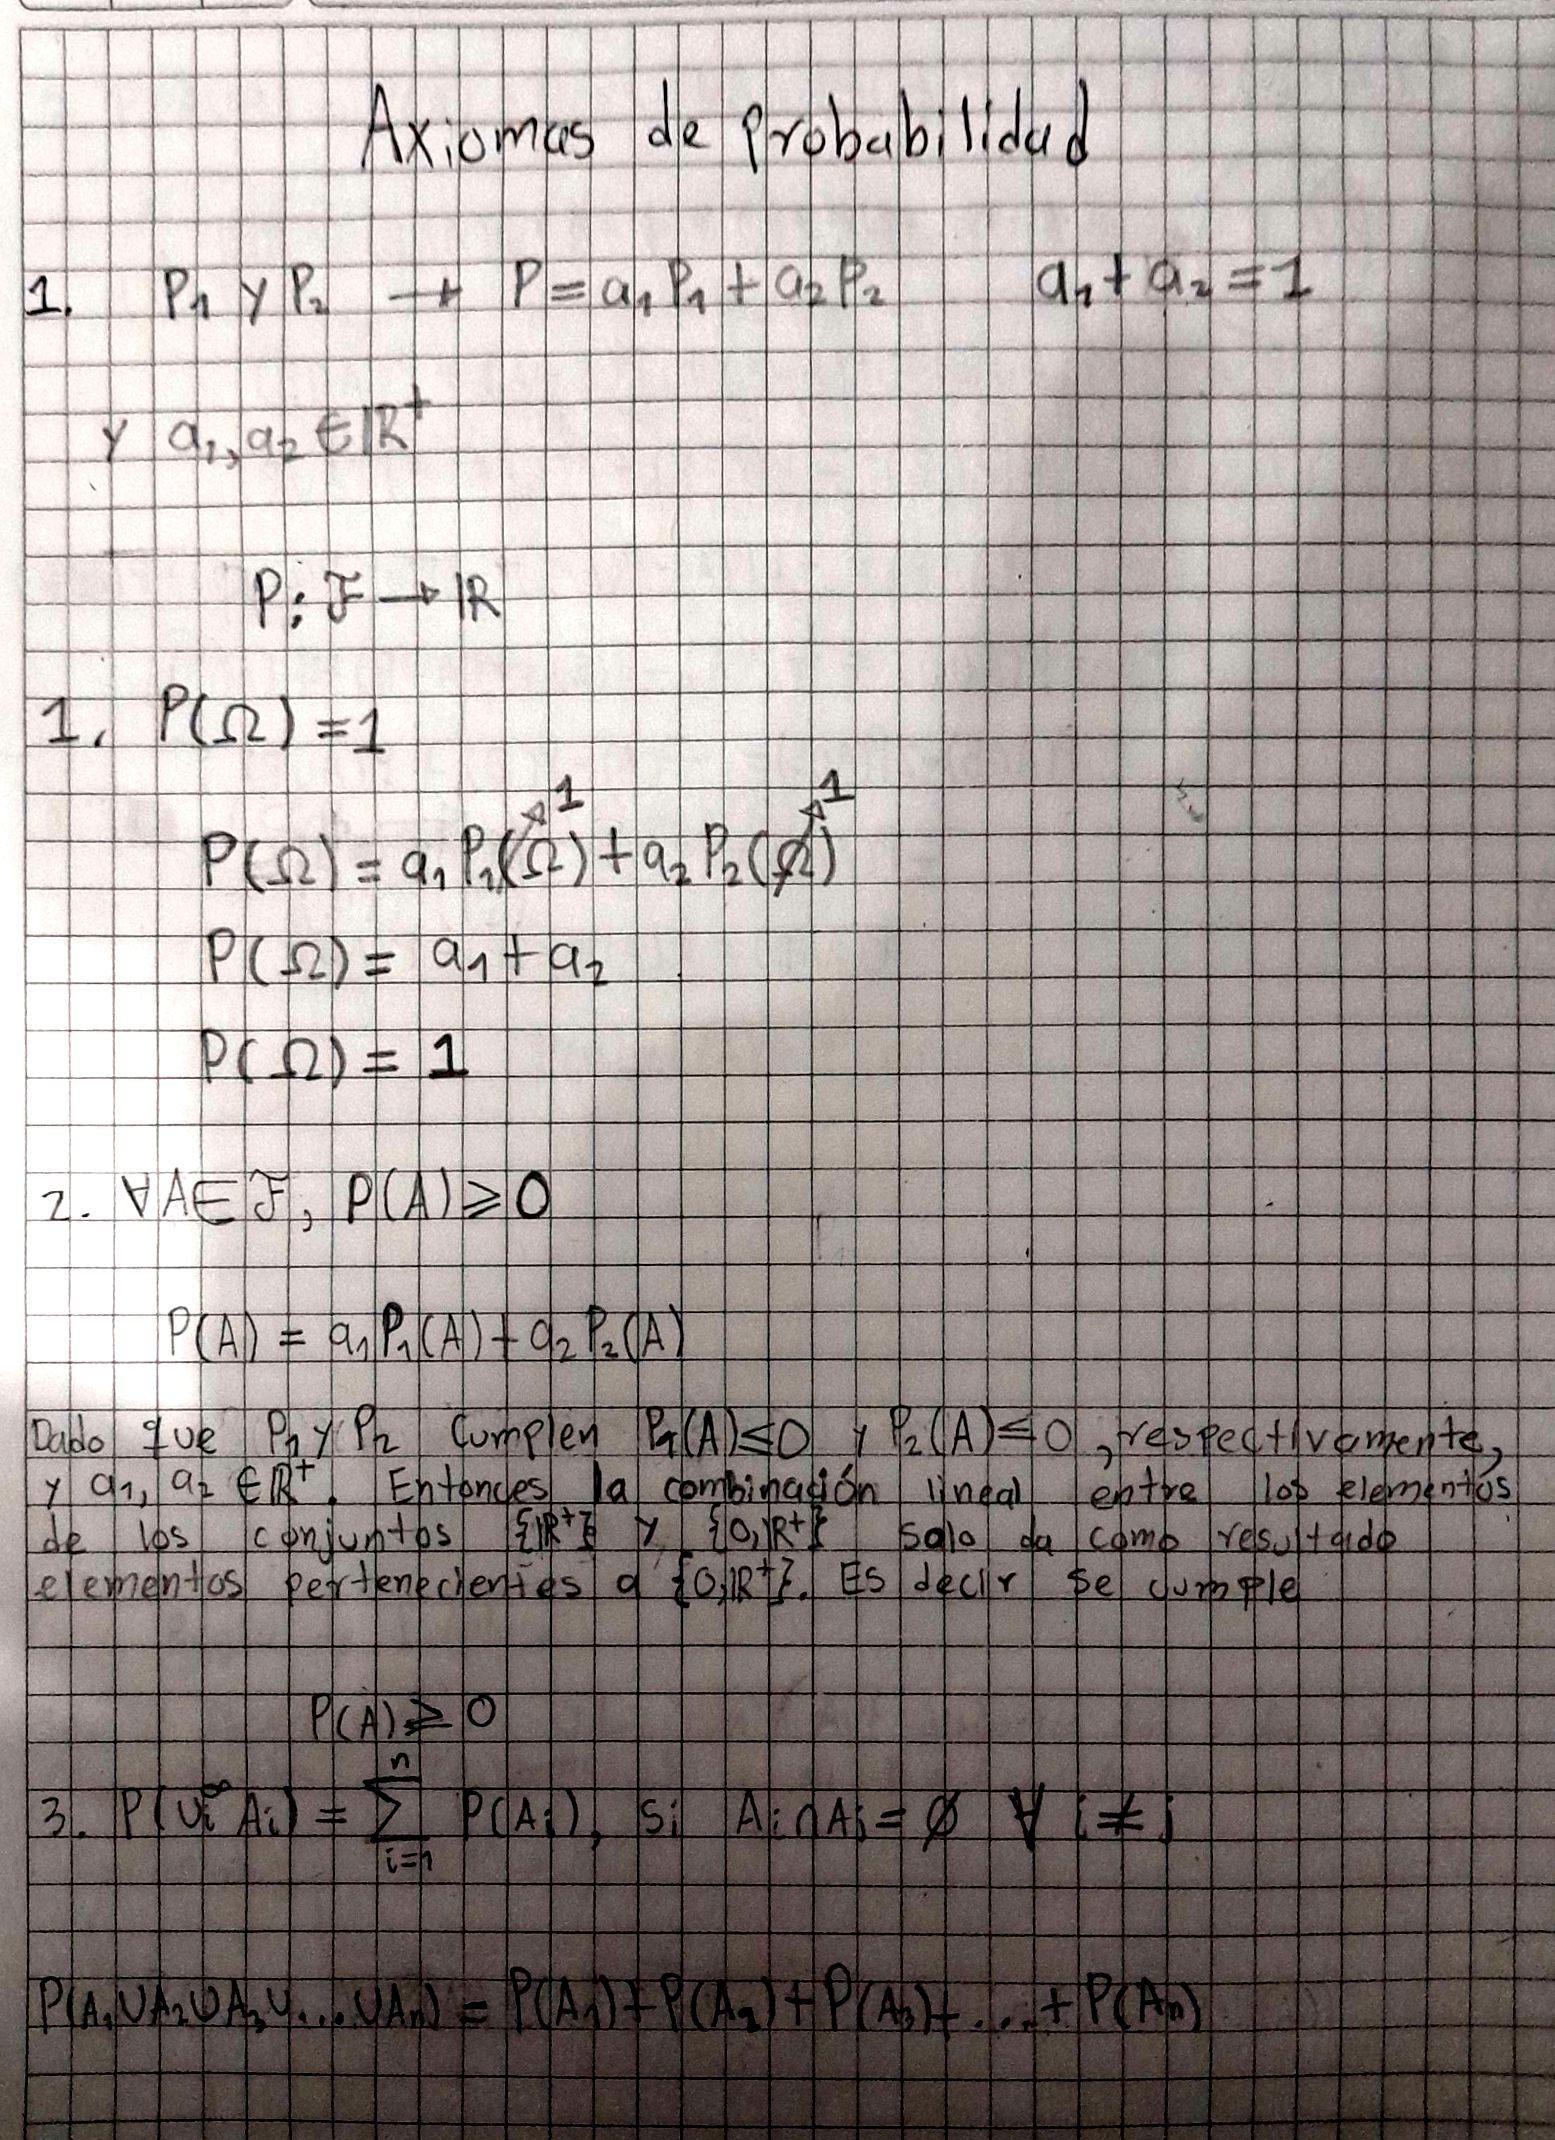 Axiomas de probabilidad
1. P₁ y P₂ → P = a₁P₁ + a₂P₂ a₁ + a₂ = 1
y a₁, a₂ ∈ ℝ⁺
P: ℱ → ℝ
1. P(Ω) = 1
1 1
P(Ω) = a₁P₁(Ω) + a₂P₂(Ω)
P(Ω) = a₁ + a₂
P(Ω) = 1
2. ∀A ∈ ℱ, P(A) ≥ 0
P(A) = a₁P₁(A) + a₂P₂(A)
Dado que P₁ y P₂ cumplen P₁(A) ≤ 0 y P₂(A) ≤ 0, respectivamente,
y a₁, a₂ ∈ ℝ⁺. Entonces la combinación lineal entre los elementos
de los conjuntos {ℝ⁺} y {0, ℝ⁺} solo da como resultado
elementos pertenecientes a {0, ℝ⁺}. Es decir se cumple
P(A) ≥ 0
3. P(∪ᵢ^∞ Aᵢ) = ∑_{i=1}^{n} P(Aᵢ), si Aᵢ ∩ Aⱼ = ∅ ∀ i ≠ j
P(A₁ ∪ A₂ ∪ A₃ ∪ ... ∪ Aₙ) = P(A₁) + P(A₂) + P(A₃) + ... + P(Aₙ)